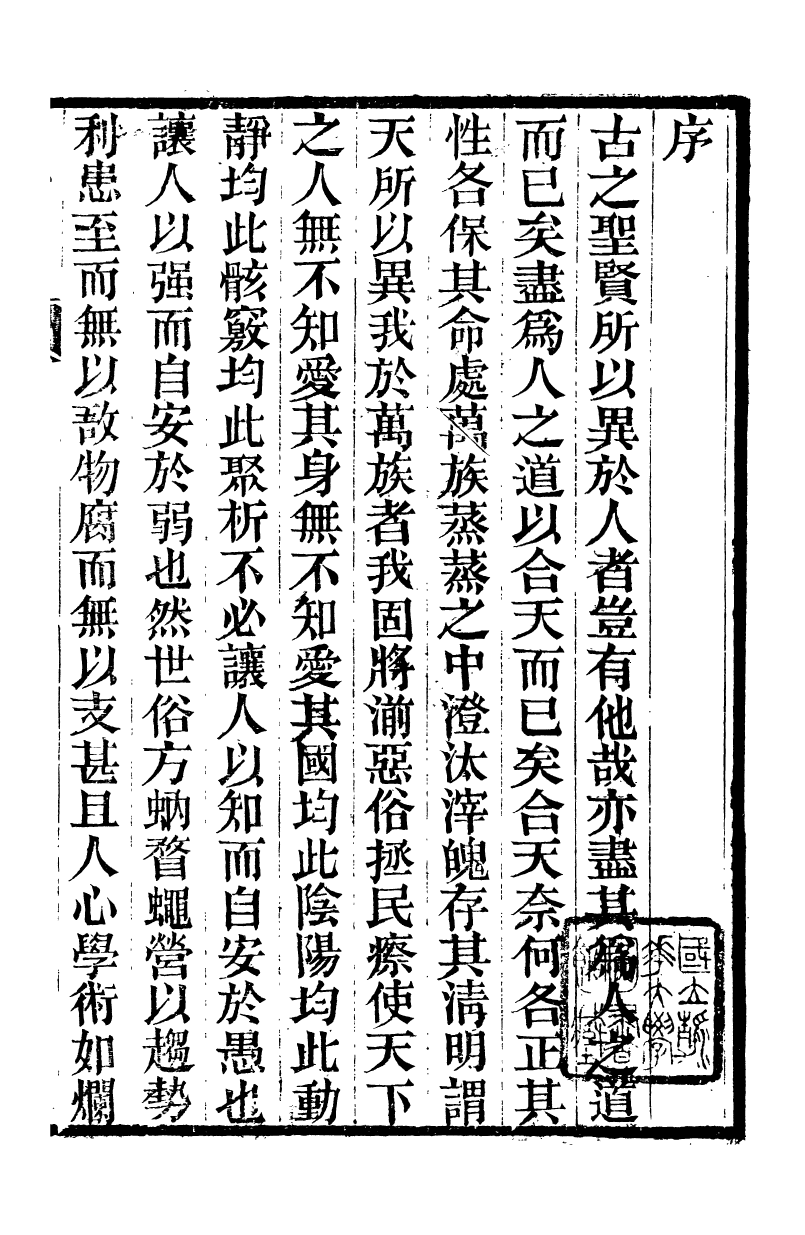 序
古之聖賢所以異於人者豈有他哉亦盡其爲人之道
而已矣盡爲人之道以合天而已矣合天奈何各正其
性各保其命處萬族蒸蒸之中澄汰滓魄存其淸明謂
天所以異我於萬族者我固將湔惡俗拯民瘵使天下
之人無不知愛其身無不知愛其國均此陰陽均此動
靜均此骸竅均此聚析不必讓人以知而自安於愚也
讓人以强而自安於弱也然世俗方蚋瞀蠅營以趨勢
利患至而無以敔物腐而無以支甚且人心學術如爛
國立
華大學